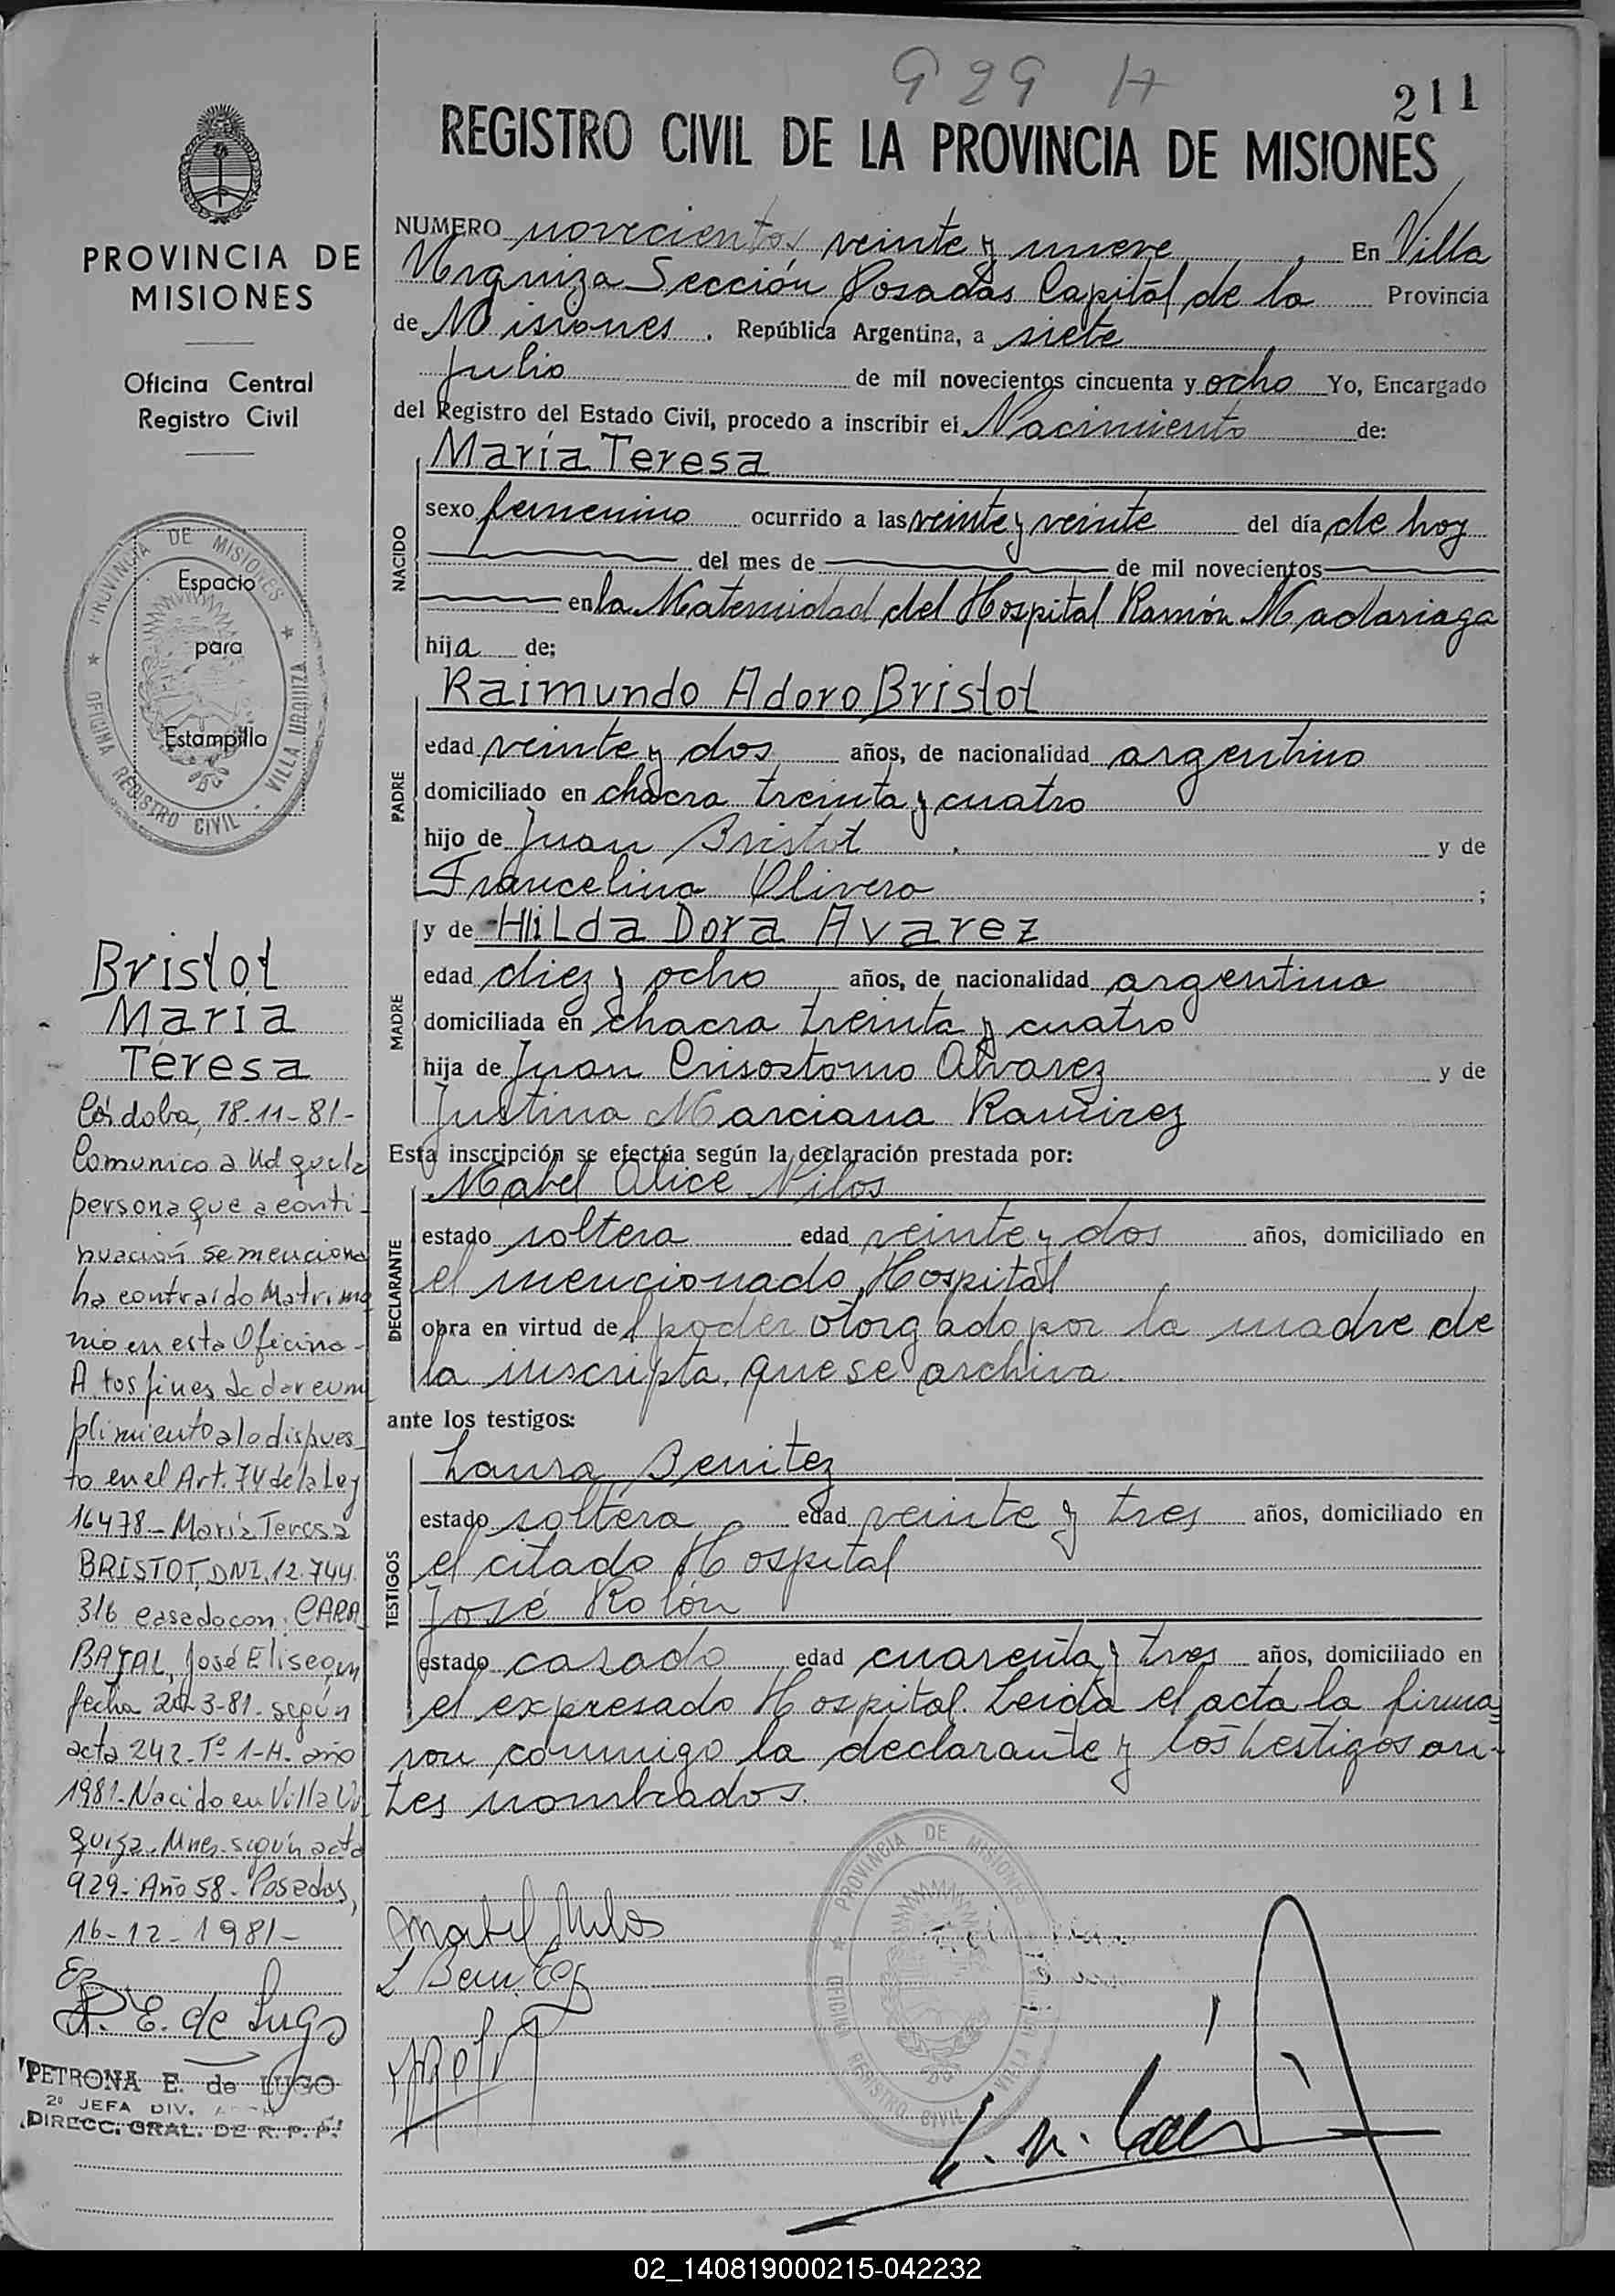 929 H
211
REGISTRO CIVIL DE LA PROVINCIA DE MISIONES
PROVINCIA DE
MISIONES
Oficina Central
Registro Civil
PROVINCIA DE MISIONES
OFICINA REGISTRO CIVIL - VILLA URQUIZA
Espacio
para
Estampilla
Bristot
María
Teresa
Córdoba, 18-11-81-
Comunico a Ud que la
persona que a conti-
nuación se menciona
ha contraído Matrimo
nio en esta Oficina-
A los fines de dar cum
plimiento a lo dispues-
to en el Art. 74 de la Ley
16478- María Teresa
BRISTOT, DNI. 12.744.
316 casado con: CARA
BAJAL, José Eliseo, en
fecha 3-81- según
acta 242- Tº 1-H- año
1981- Nacido en Villa Ur
quiza- Mnes- según acta
929- Año 58- Posadas,
16-12-1981-
P. E. de Lugo
PETRONA E. de LUGO
2º JEFA DIV.
DIRECC. GRAL. DE R. P. P.
NUMERO novecientos veinte y nueve En Villa
Urquiza Sección Posadas Capital de la Provincia
de Misiones. República Argentina, a siete
Julio de mil novecientos cincuenta y ocho Yo, Encargado
del Registro del Estado Civil, procedo a inscribir el Nacimiento de:
María Teresa
NACIDO
sexo femenino ocurrido a las veinte y veinte del día de hoy
del mes de de mil novecientos
en la Maternidad del Hospital Ramón Madariaga
hija de:
Raimundo Adoro Bristot
PADRE
edad veinte y dos años, de nacionalidad argentino
domiciliado en chacra treinta y cuatro
hijo de Juan Bristot y de
Francelina Olivera ;
y de Hilda Dora Avarez
MADRE
edad diez y ocho años, de nacionalidad argentina
domiciliada en chacra treinta y cuatro
hija de Juan Crisostomo Alvarez y de
Justina Marciana Ramirez
Esta inscripción se efectúa según la declaración prestada por:
Mabel Alice Nilos
DECLARANTE
estado soltera edad veinte y dos años, domiciliado en
el mencionado Hospital
obra en virtud del poder otorgado por la madre de
la inscripta, que se archiva.
ante los testigos:
Laura Benitez
TESTIGOS
estado soltera edad veinte y tres años, domiciliado en
el citado Hospital
José Rolón
estado casado edad cuarenta y tres años, domiciliado en
el expresado Hospital. Leida el acta la firma=
ron conmigo la declarante y los testigos an-
tes nombrados.
Mabel Nilos
L Benitez
PROVINCIA DE MISIONES
OFICINA REGISTRO CIVIL VILLA
02_140819000215-042232